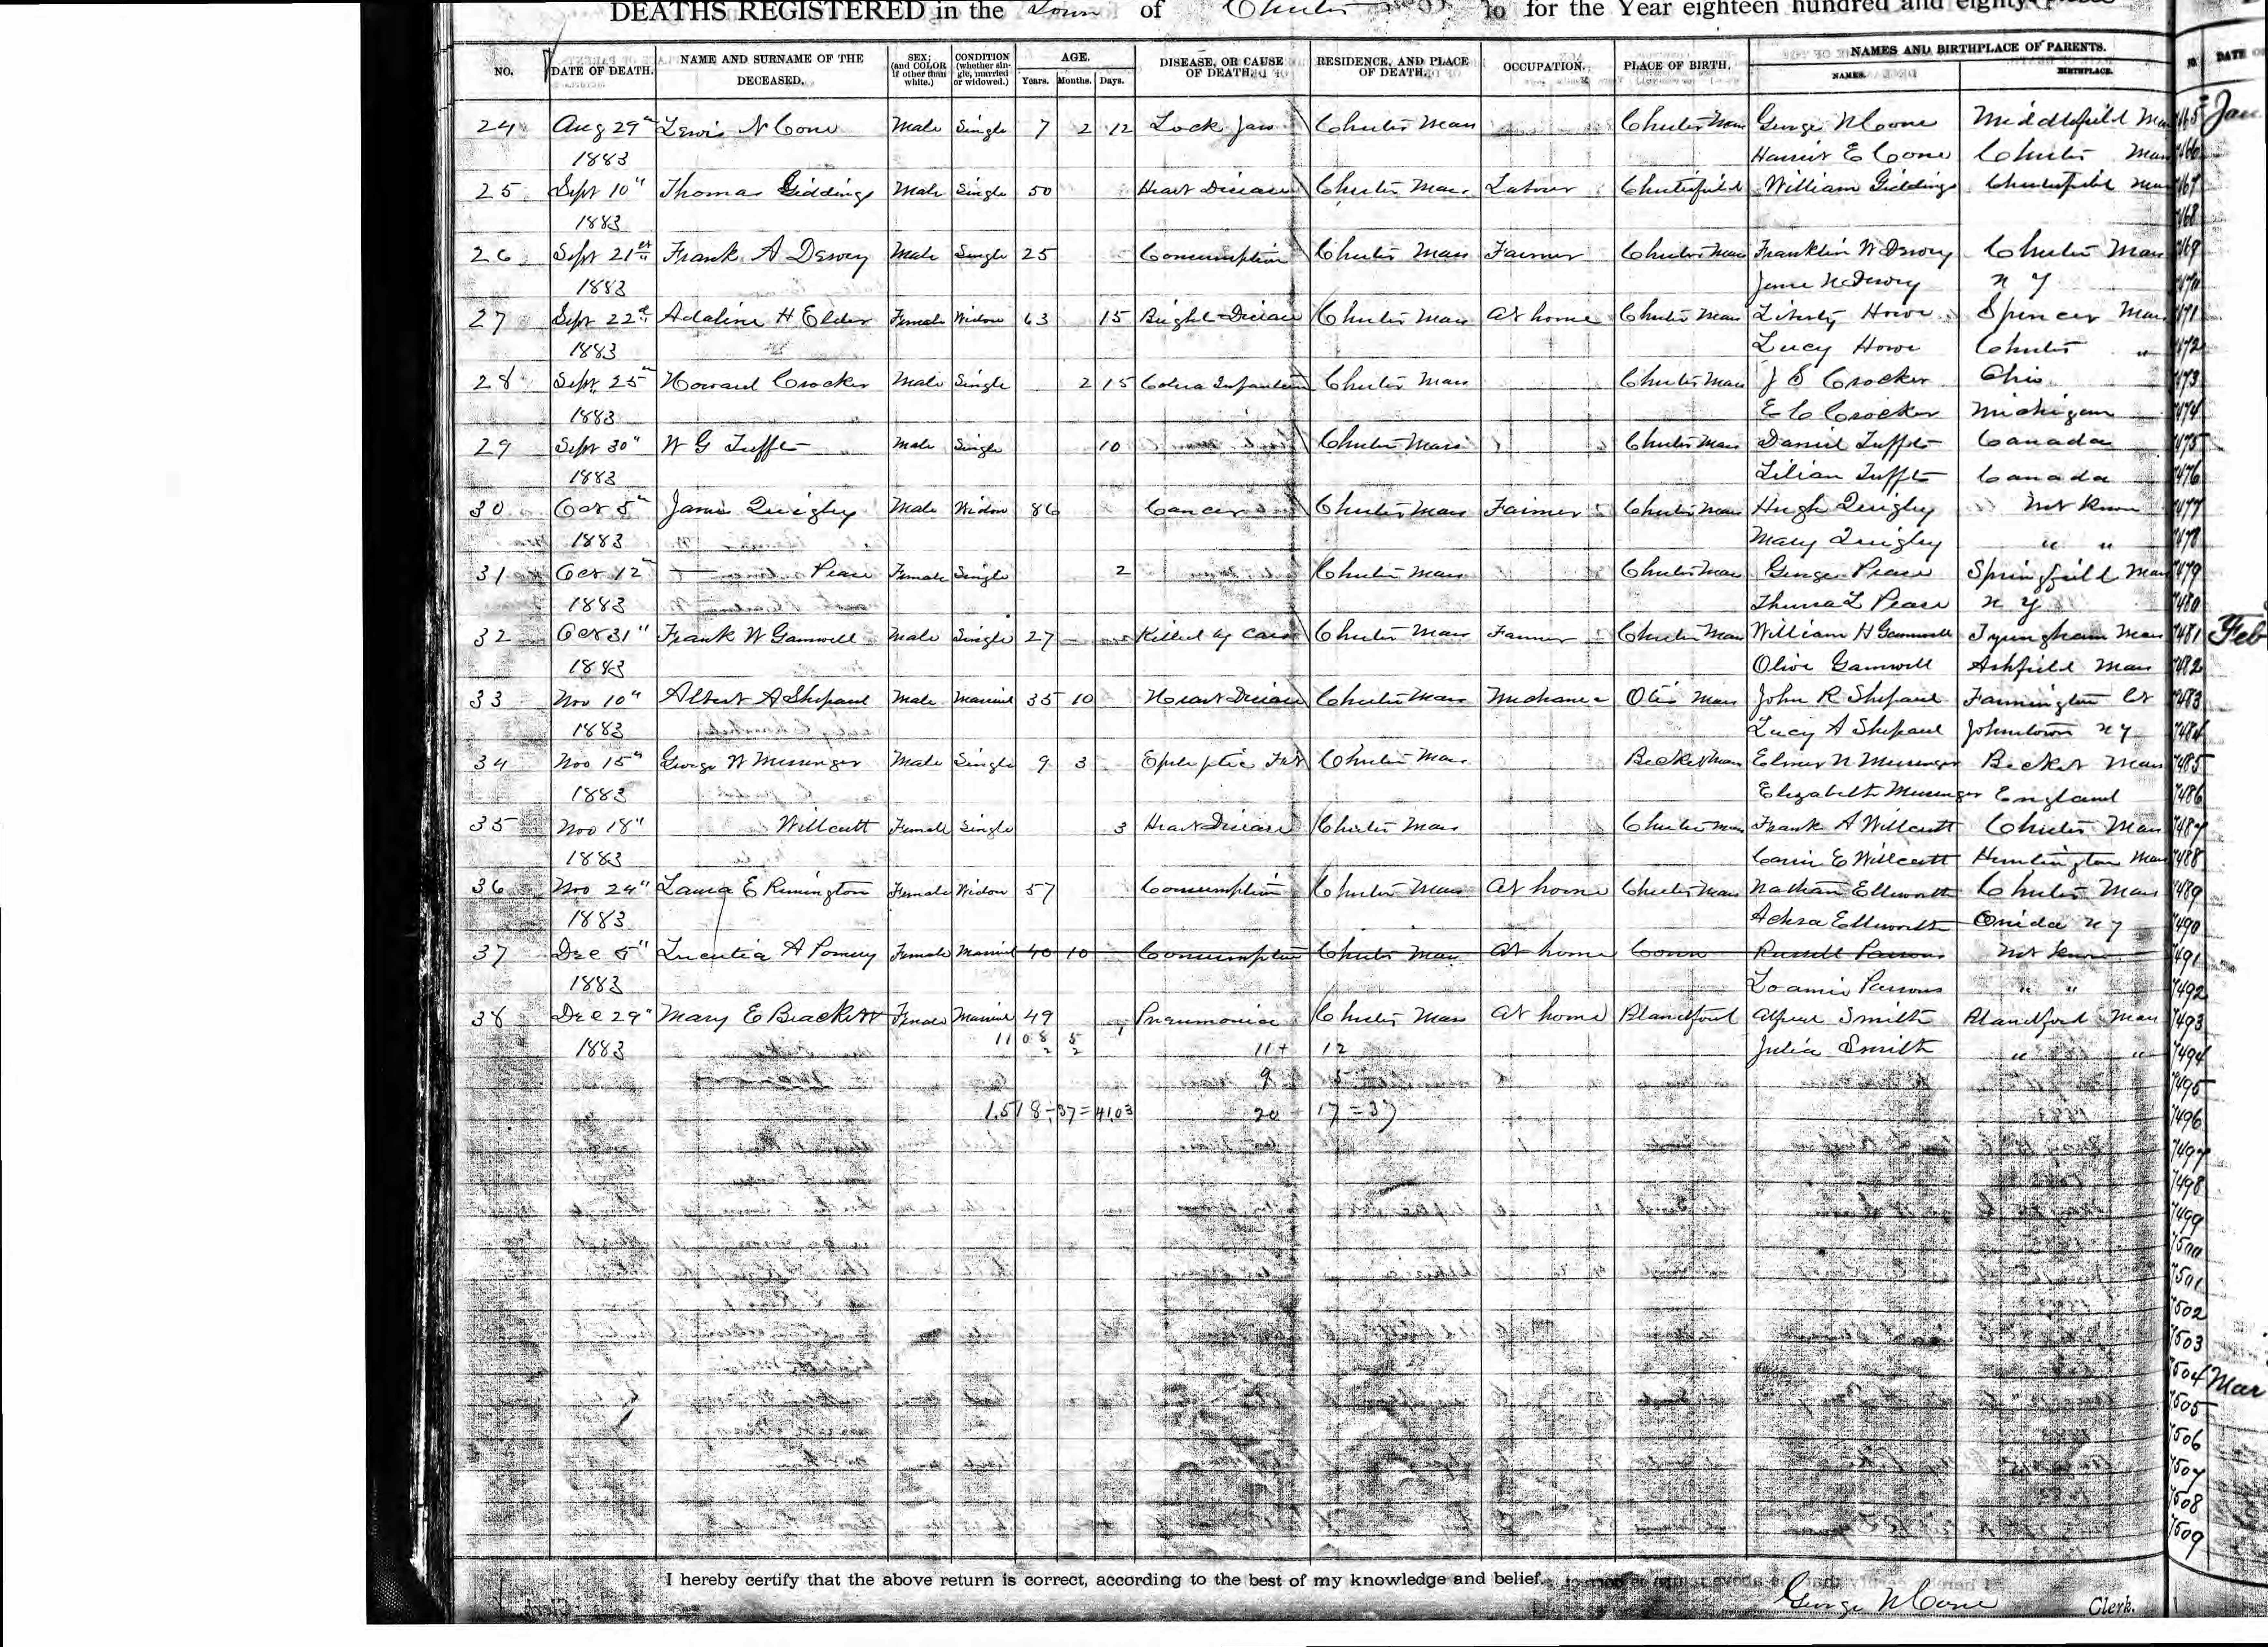 DEATHS REGISTERED in the Town of Chester for the Year eighteen hundred and eighty-
NO. DATE OF DEATH. NAME AND SURNAME OF THE DECEASED. SEX; (and COLOR if other than white.) CONDITION (whether single, married or widowed.) AGE. Years. Months. Days. DISEASE, OR CAUSE OF DEATH. RESIDENCE, AND PLACE OF DEATH. OCCUPATION. PLACE OF BIRTH. NAMES AND BIRTHPLACE OF PARENTS. NAMES. BIRTHPLACE. DATE
24 Aug 29" Lewis N Cone Male Single 7 2 12 Lock Jaw Chester Mass Chester Mass George N Cone Middlefield Mass Jan
1883 Harriet E Cone Chester Mass 7466
25 Sept 10" Thomas Giddings Male Single 50 Heart Disease Chester Mass Labourer Chesterfield William Giddings Chesterfield Mass 7467
1883 7468
26 Sept 21st Frank A Dewey Male Single 25 Consumption Chester Mass Farmer Chester Mass Franklin W Dewey Chester Mass 7469
1883 Dewey N Y 7470
27 Sept 22d Adaline H Elder Female Widow 63 15 Bright Disease Chester Mass At home Chester Mass Liberty Howe Spencer Mass 7471
1883 Lucy Howe Chester " 7472
28 Sept 25" Howard Crocker Male Single 2 15 Colera Infantum Chester Mass Chester Mass J S Crocker Ohio 7473
1883 E C Crocker Michigan 7474
29 Sept 30" W G Suffts Male Single 10 Chester Mass Chester Mass Daniel Suffts Canada 7475
1883 Lilian Suffts Canada 7476
30 Oct 5" James Quigley Male Widow 86 Cancer Chester Mass Farmer Chester Mass Hugh Quigley Not Know 7477
1883 Mary Quigley " " 7478
31 Oct 12" — Pease Female Single 2 Chester Mass Chester Mass George Pease Springfield Mass 7479
1883 L Pease N Y 7480
32 Oct 31" Frank W Gamwell Male Single 27 Killed by Cars Chester Mass Farmer Chester Mass William H Gamwell Tyringham Mass 7481 Feb
1883 Olive Gamwell Ashfield Mass 7482
33 Nov 10" Albert A Shepard Male Married 35 10 Heart Disease Chester Mass Mechanic Otis Mass John R Shepard Farmington Ct 7483
1883 Lucy A Shepard Johnstown N Y 7484
34 Nov 15" George W Messenger Male Single 9 3 Epileptic Fits Chester Mass Becket Mass Elmer N Messenger Becket Mass 7485
1883 Elizabeth Messenger England 7486
35 Nov 18" Willcutt Female Single 3 Heart Disease Chester Mass Chester Mass Frank A Willcutt Chester Mass 7487
1883 Carrie E Willcutt Huntington Mass 7488
36 Nov 24" Laura E Remington Female Widow 57 Consumption Chester Mass At home Chester Mass Nathan Ellsworth Chester Mass 7489
1883 Achsa Ellsworth Oneida N Y 7490
37 Dec 5" Lucretia A Pomeroy Female Married 40 10 Consumption Chester Mass At home Conn Russell Parsons Not Know 7491
1883 Loamie Parsons " " 7492
38 Dec 29" Mary E Brackett Female Married 49 1 Pneumonia Chester Mass At home Blandford Alfred Smith Blandford Mass 7493
1883 11 08 5 2 2 11+ 12 Julia Smith " " 7494
9 5 7495
1.518 ÷ 37 = 41.03 20 17 = 37 7496
7497
7498
7499
7500
7501
7502
7503
7504 Mar
7505
7506
7507
7508
7509
I hereby certify that the above return is correct, according to the best of my knowledge and belief.
George N Cone Clerk.